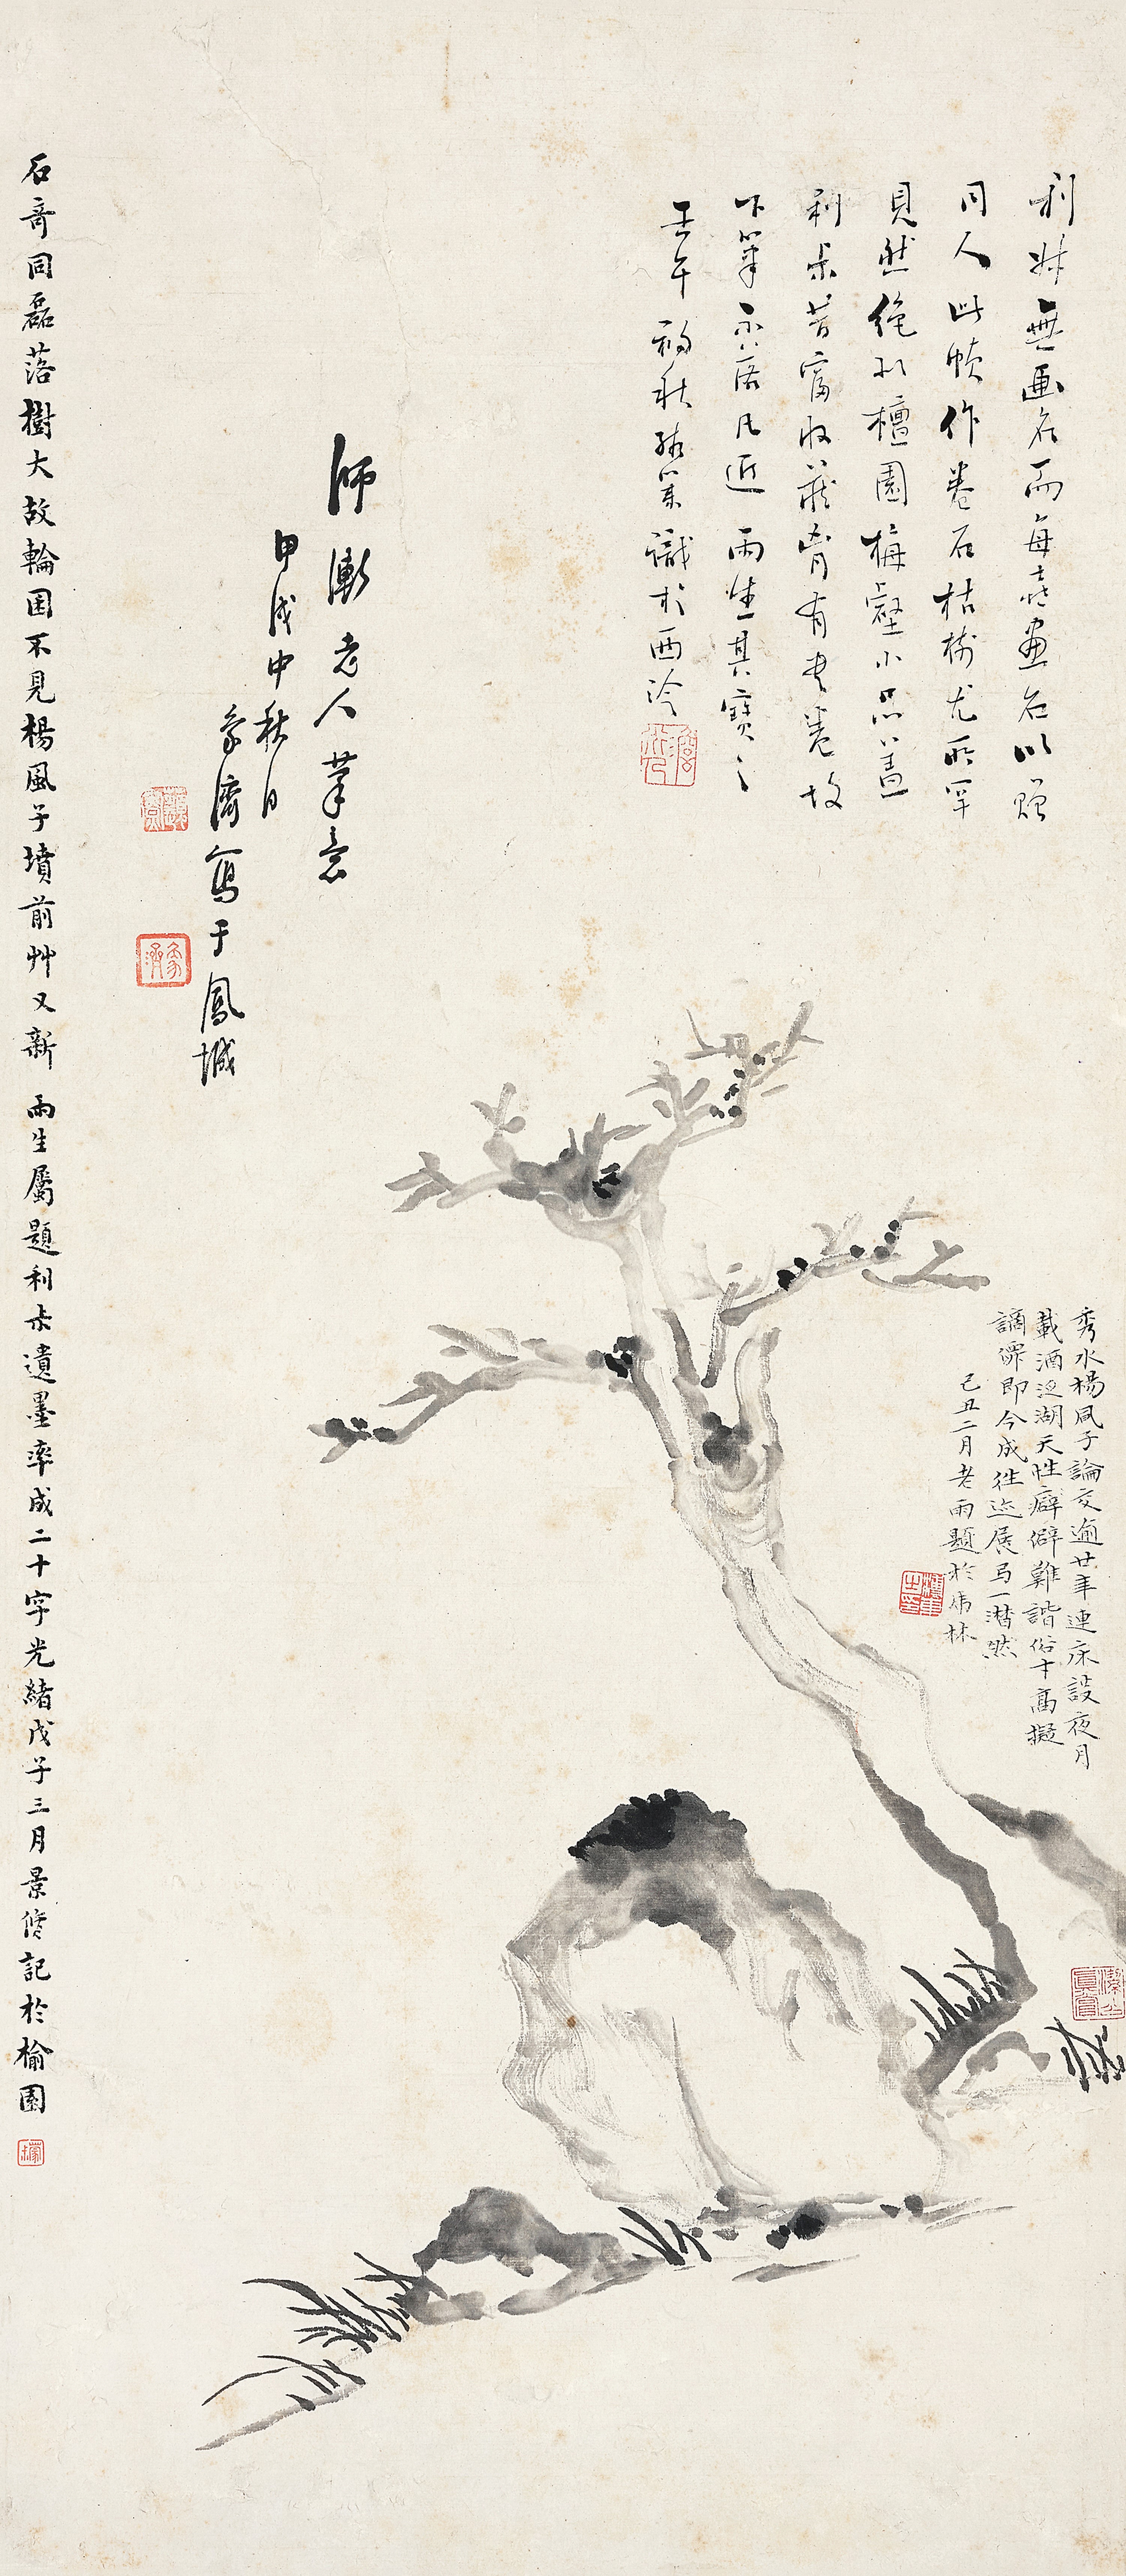 利叔無画名而每喜畫石以贈
同人此幀作卷石枯樹尤所罕
見然絶似檀園梅壑小品蓋
利叔昔富收藏胷有書卷故
下筆不落凡近 雨生其寶之
壬午初秋 識於西泠
師漸老人筆意
甲戌中秋日
象濟寫于鳳城
石奇同磊落樹大故輪囷不見楊風子墳前艸又新 雨生屬題利叔遺墨率成二十字光緒戊子三月景修記於榆園
秀水楊風子論交逾廿年連床設夜月
載酒泛湖天性癖僻難諧俗才高擬
謫僊即今成往迹展弓一潸然
己丑二月老雨題於虎林
象濟